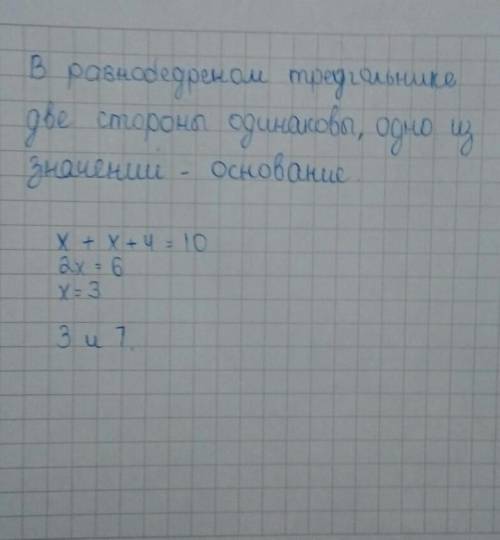 В равнобедреном треугольнике
две стороны одинаковы, одно из
значений - основание
x + x + 4 = 10
2x = 6
x = 3
3 и 7.